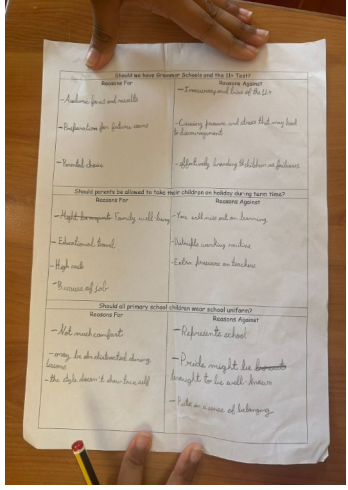 Should we have Grammar Schools and the 11+ Test?
Reasons For
Reasons Against
- Academic focus and results
- Inaccuracy and bias of the 11+
- Preparation for future exams
- Causing pressure and stress that may lead
to discouragement
- Parental choice
- effectively branding the children as failures
Should parents be allowed to take their children on holiday during term time?
Reasons For
Reasons Against
- Family well-being
- You will miss out on learning
- Educational travel
- working routine
- High costs
- Extra pressure on teachers
- Because of job
Should all primary school children wear school uniform?
Reasons For
Reasons Against
- Not much comfort
- Represents school
- may be distracted during
lessons
- Pride might be
brought to be well-known
- the style doesn't show
- Puts on a sense of belonging